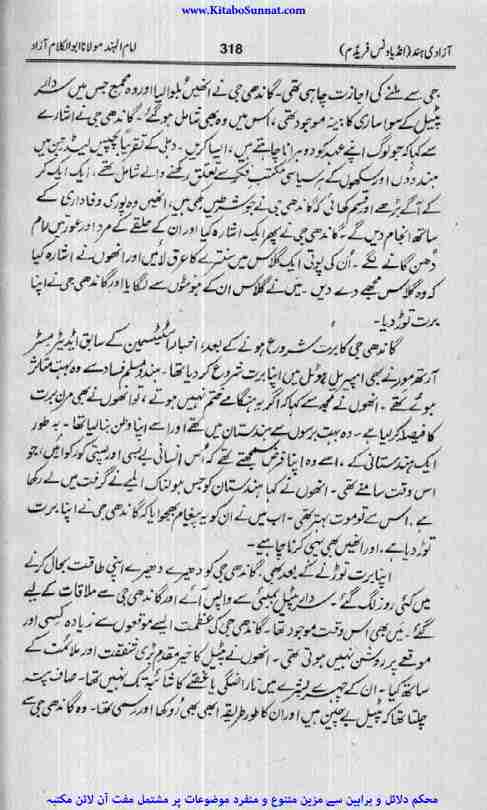 www.KitaboSunnat.com
آزادی ہند (انڈیا ونس فریڈم) 318 امام الہند مولانا ابوالکلام آزاد
جی سے ملنے کی اجازت چاہی تھی۔ گاندھی جی نے انھیں بلوالیا اور وہ مجمع جس میں سردار
پٹیل کے سوا ساری کابینہ موجود تھی، اس میں وہ بھی شامل ہو گئے۔ گاندھی جی نے اشارے
سے کہا کہ جو لوگ اپنے عہد کو دوہرانا چاہتے ہیں، ایسا کریں۔ دہلی کے تقریباً پچیس لیڈر جن میں
ہندوؤں اور سکھوں کے ہر سیاسی مکتب فکر سے تعلق رکھنے والے شامل تھے، ایک ایک کر
کے آگے بڑھے اور قسم کھائی کہ گاندھی جی نے جو شرطیں رکھی ہیں، انھیں وہ پوری وفاداری کے
ساتھ انجام دیں گے۔ گاندھی جی نے پھر ایک اشارہ کیا اور ان کے حلقے کے مرد اور عورتیں رام
دُھن گانے لگے۔ اُن کی پوتی ایک گلاس میں سنترے کا عرق لائیں اور انھوں نے اشارہ کیا
کہ وہ گلاس مجھے دے دیں۔ میں نے گلاس ان کے ہونٹوں سے لگایا اور گاندھی جی نے اپنا
برت توڑ دیا۔
گاندھی جی کا برت شروع ہونے کے بعد، اخبار اسٹیٹسمین کے سابق ایڈیٹر مسٹر
آرتھر مور نے بھی امپیریل ہوٹل میں اپنا برت شروع کر دیا تھا۔ ہندو مسلم فساد سے وہ بہت متاثر
ہوئے تھے۔ انھوں نے مجھ سے کہا کہ اگر یہ ہنگامے ختم نہیں ہوتے، تو انھوں نے بھی مرن برت
کا فیصلہ کر لیا ہے۔ وہ بہت برسوں سے ہندستان میں تھے اور اسے اپنا وطن بنا لیا تھا۔ بہ طور
ایک ہندستانی کے، اسے وہ اپنا فرض سمجھتے تھے کہ اُس انسانی بے بسی اور مصیبتی کو رکوائیں، جو
اس وقت سامنے تھی۔ انھوں نے کہا ہندستان کو جس ہولناک المیے نے گرفت میں لے رکھا
ہے، اس سے تو موت بہتر تھی۔ اب میں نے ان کو یہ پیغام بھجوایا کہ گاندھی جی نے اپنا برت
توڑ دیا ہے، اور انھیں بھی یہی کرنا چاہیے۔
اپنا برت توڑنے کے بعد بھی، گاندھی جی کو دھیرے دھیرے اپنی طاقت بحال کرنے
میں کئی روز لگ گئے۔ سردار پٹیل بمبئی سے واپس آئے اور گاندھی جی سے ملاقات کے لیے
گئے۔ میں بھی اس وقت موجود تھا۔ گاندھی جی کی عظمت ایسے موقعوں سے زیادہ کسی اور
موقعے پر روشن نہیں ہوتی تھی۔ انھوں نے پٹیل کا خیر مقدم بڑی شفقت اور ملائمت کے
ساتھ کیا۔ ان کے چہرے بشرے میں ناراضگی یا غصے کا شائبہ تک نہیں تھا۔ صاف پتہ
چلتا تھا کہ پٹیل بے چین ہیں اور ان کا طور طریقہ ابھی بھی رُوکھا اور رسمی تھا۔ وہ گاندھی جی سے
محکم دلائل و براہین سے مزین متنوع و منفرد موضوعات پر مشتمل مفت آن لائن مکتبہ